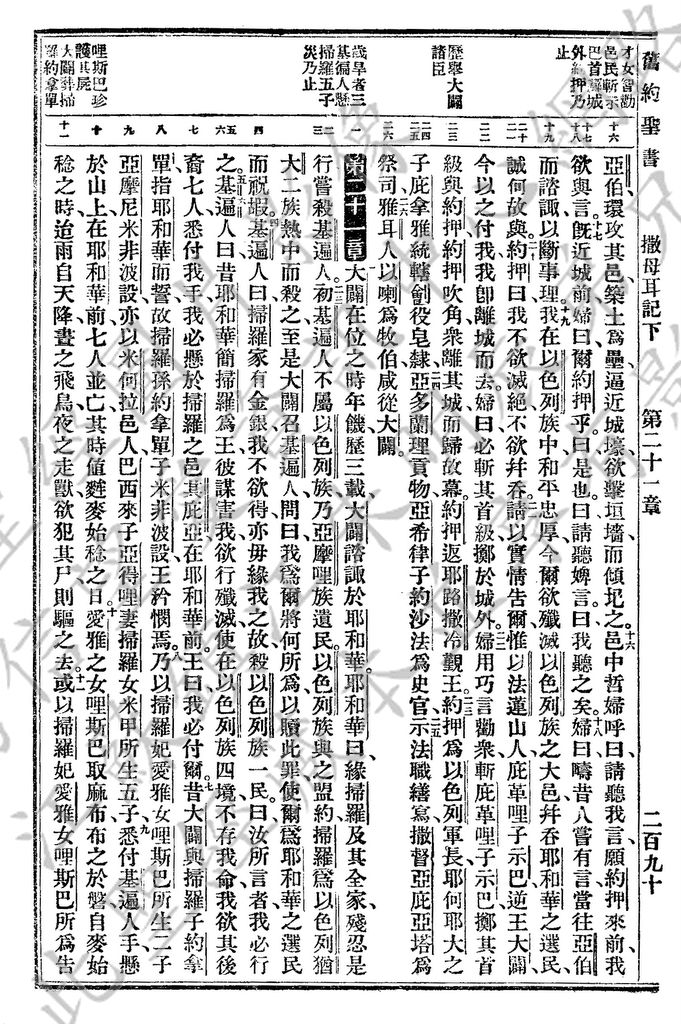 舊約聖書 撒母耳記下 第二十一章 二百九十
才女智勸
邑民斬示
巴首擲城
外約押乃
止
歷舉大闢
諸臣
歲旱者三
基遍人懸
掃羅五子
災乃止
哩斯巴珍
護其屍
大闢葬掃
羅約拿單
十六
十七
十八
十九
二十
二一
二二
二三
二四
二五
二六
一
二
三
四
五
六
七
八
九
十
十一
亞伯環攻其邑築土爲壘逼近城壕欲擊垣墻而傾圯之十六邑中哲婦呼曰請聽我言願約押來前我
欲與言十七旣近城前婦曰爾約押乎曰是也曰請聽婢言曰我聽之矣十八婦曰疇昔人嘗有言當往亞伯
而諮諏以斷事理十九我在以色列族中和平忠厚今爾欲殲滅以色列族之大邑幷吞耶和華之選民
誠何故與二十約押曰我不欲滅絕不欲幷呑二一請以實情告爾惟以法蓮山人庇革哩子示巴逆王大闢
今以之付我我卽離城而去婦曰必斬其首級擲於城外二二婦用巧言勸衆斬庇革哩子示巴擲其首
級與約押約押吹角衆離其城而歸故幕約押返耶路撒冷覲王二三約押爲以色列軍長耶何耶大之
子庇拿雅統轄劊役皂隸二四亞多蘭理貢物亞希律子約沙法爲史官二五示法職繕寫撒督亞庇亞塔爲
祭司二六雅耳人以喇爲牧伯咸從大闢
第二十一章 大闢在位之時年饑歷三載大闢諮諏於耶和華耶和華曰緣掃羅及其全家殘忍是
行嘗殺基遍人二初基遍人不屬以色列族乃亞摩哩族遺民以色列族與之盟約掃羅爲以色列猶
大二族熱中而殺之三至是大闢召基遍人問曰我爲爾將何所爲以贖此罪使爾爲耶和華之選民
而祝嘏四基遍人曰掃羅家有金銀我不欲得亦毋緣我之故殺以色列族一民曰汝所言者我必行
之五基遍人曰昔耶和華簡掃羅爲王彼謀害我欲行殲滅使在以色列族四境不存我命六我欲其後
裔七人悉付我手我必懸於掃羅之邑其庇亞在耶和華前王曰我必付爾七昔大闢與掃羅子約拿
單指耶和華而誓故掃羅孫約拿單子米非波設王矜憫焉八乃以掃羅妃愛雅女哩斯巴所生二子
亞摩尼米非波設亦以米何拉邑人巴西來子亞得哩妻掃羅女米甲所生五子九悉付基遍人手懸
於山上在耶和華前七人並亡其時値麰麥始稔之日十愛雅之女哩斯巴取麻布布之於磐自麥始
稔之時迨雨自天降晝之飛鳥夜之走獸欲犯其尸則驅之去十一或以掃羅妃愛雅女哩斯巴所爲告